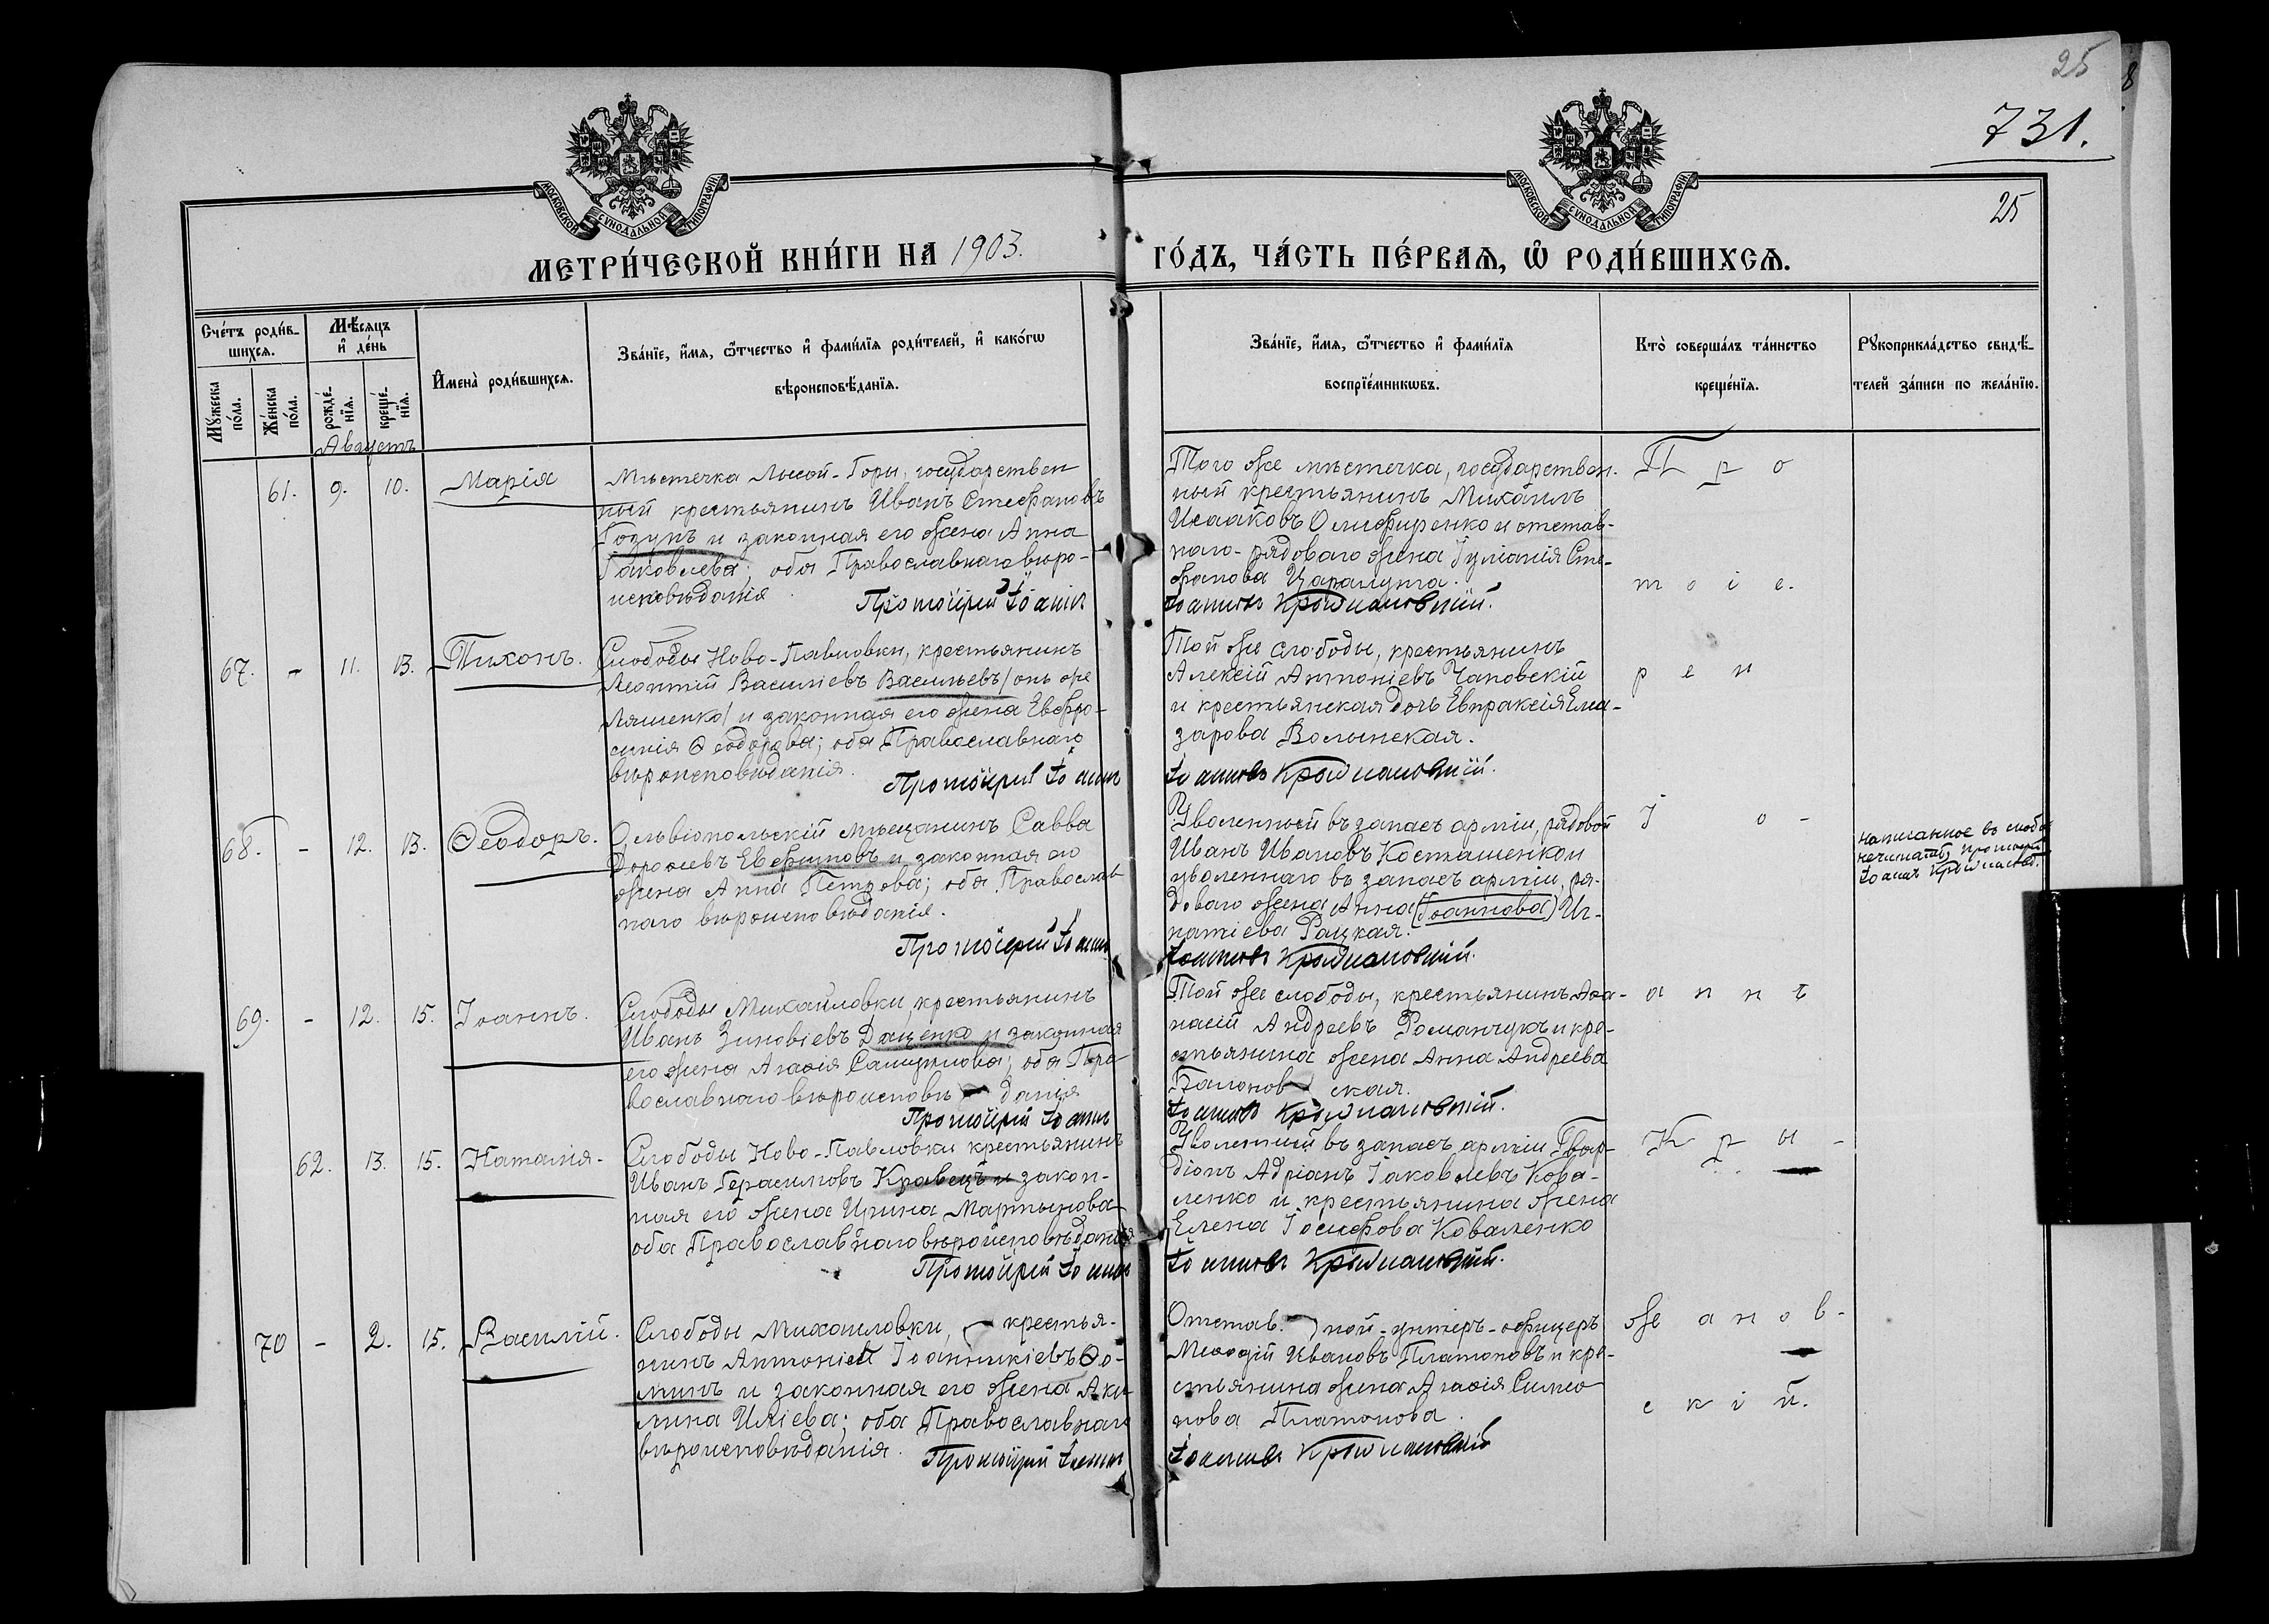 25
8
731.
25
МОСКОВСКОЙ СѴНОДАЛЬНОЙ ТИПОГРАФІИ
МОСКОВСКОЙ СѴНОДАЛЬНОЙ ТИПОГРАФІИ
МЕТРИ́ЧЕСКОЙ КНИ́ГИ НА 1903. ГО́ДЪ, ЧА́СТЬ ПЕ́РВАѦ, Ѡ҆ РОДИ́ВШИХСѦ.
Сче́тъ роди́в-
шихсѧ.
Мꙋ́жеска по́ла.
Же́нска по́ла.
Мѣ́сѧцъ и҆ де́нь
рожде́-
нїѧ.
креще́-
нїѧ.
И҆мена̀ роди́вшихсѧ.
Зва́нїе, и҆́мѧ, ѻ҆́тчество и҆ фами́лїѧ роди́телей, и҆ како́гѡ
вѣроисповѣ́данїѧ.
Зва́нїе, и҆́мѧ, ѻ҆́тчество и҆ фами́лїѧ
воспрїе́мникѡвъ.
Кто̀ соверша́лъ та́инство
креще́нїѧ.
Рꙋкоприкла́дство свидѣ́-
телей за́писи по жела́нїю.
Августъ
61. 9. 10. Марія
Мѣстечка Лысой-Горы, государствен
ный крестьянинъ Иванъ Стефановъ
Гозунъ и законная его жена Анна
Іаковлева; оба Православнаго вѣро-
исповѣданія.
Протоіерей Іоаннъ
Того же мѣстечка, государствен-
ный крестьянинъ Михаилъ
Исааковъ Олиференко и отстав-
наго-рядоваго жена Іуліанія Сте-
фанова Царалунга.
Іоанновъ Крыжановскій.
П р о
т о і е.
67. - 11. 13. Тихонъ.
Слободы Ново-Павловки, крестьянинъ
Леонтій Василіевъ Васильевъ/онъ же
Ляшенко/ и законная его жена Евфро-
синія Ѳеодорова; оба Православнаго
вѣроисповѣданія.
Протоіерей Іоаннъ
Той же слободы, крестьянинъ
Алексій Антоніевъ Чаповскій
и крестьянская дочь Евпраксія Елеа-
зарова Волынская.
Іоанновъ Крыжановскій.
р е й
68. - 12. 13. Ѳеодоръ.
Ольвіопольскій мѣщанинъ Савва
Дороѳеевъ Евфимовъ и законная его
жена Анна Петрова; оба Православ
наго вѣроисповѣданія.
Протоіерей Іоаннъ
Уволенный въ запасъ арміи, рядовой
Иванъ Ивановъ Косташенко и
уволеннаго въ запасъ арміи, ря-
доваго жена Анна (Іоаннова) Иг-
натіева Рацкая.
Іоанновъ Крыжановскій.
І о -
Написанное въ скобѣ
нечитать, протоіерей
Іоаннъ Крыжановс.
69. - 12. 15. Іоаннъ.
Слободы Михайловки, крестьянинъ
Иванъ Зиновіевъ Даценко и законная
его жена Агаѳія Самуилова; оба Пра
вославнаго вѣроисповѣ данія
Протоіерей Іоаннъ
Той же слободы, крестьянинъ Аѳа-
насій Андреевъ Романчукъ и кре-
стьянина жена Анна Андреева
Балонов ская.
Іоанновъ Крыжановскій.
а н н ъ
62. 13. 15. Наталія.
Слободы Ново-Павловки крестьянинъ
Иванъ Герасимовъ Кравецъ и закон-
ная его жена Ирина Мартынова
оба Православнаго вѣроисповѣданія
Протоіерей Іоаннъ
Уволенный въ запасъ арміи Гвар-
діонъ Адріанъ Іаковлевъ Кова-
ленко и крестьянина жена
Елена Іосифова Коваленко
Іоанновъ Крыжановскій.
К р ы -
70 - 2. 15. Василій.
Слободы Михайловки, крестья-
нинъ Антоній Іоанникіевъ Ѳо-
минъ и законная его жена Аки-
лина Иліева; оба Православнаго
вѣроисповѣданія.
Протоіерей Іоаннъ
Отстав. ной-унтеръ-офицеръ
Меѳодій Ивановъ Платоновъ и кре-
стьянина жена Агаѳія Симео
нова Платонова.
Іоанновъ Крыжановскій
ж а н о в -
с к і й.